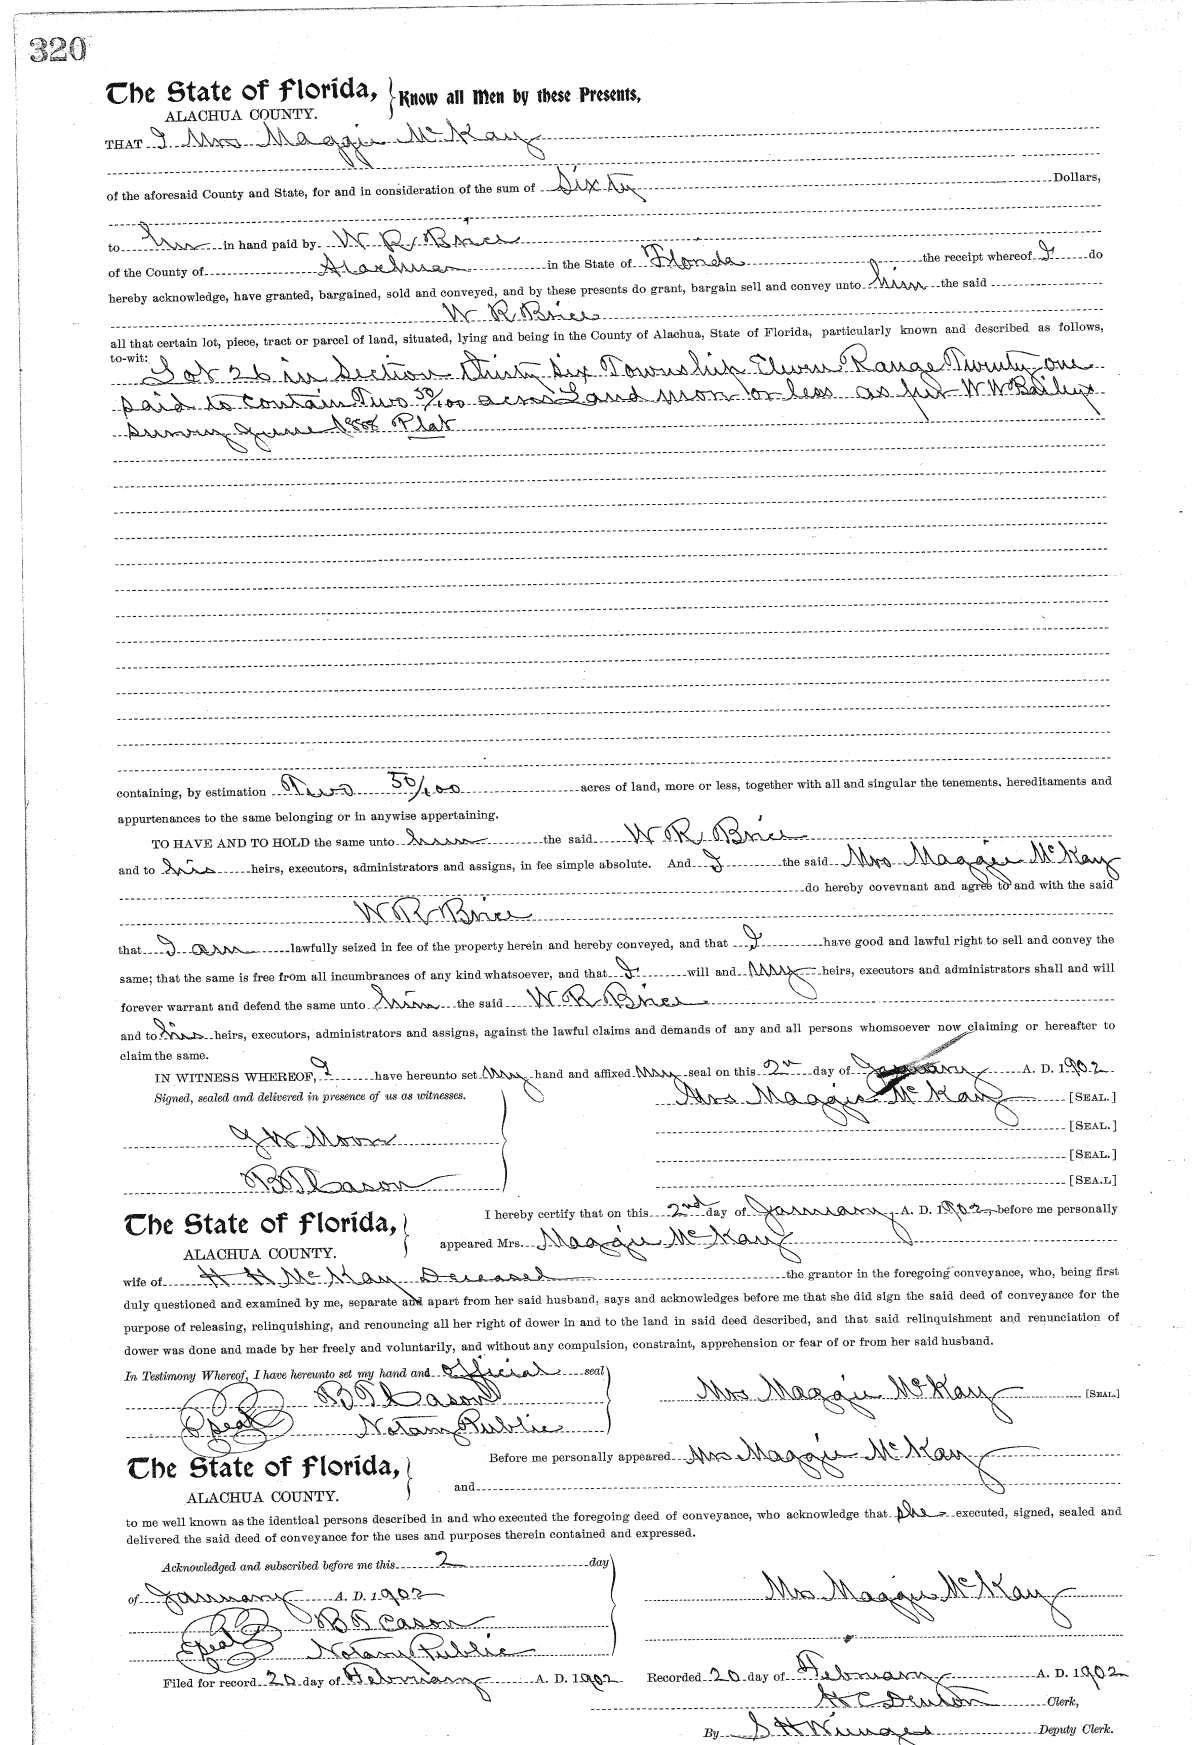 320
The State of Florida, Know all Men by these Presents,
ALACHUA COUNTY.
THAT I Mrs Maggie McKay
of the aforesaid County and State, for and in consideration of the sum of Sixty Dollars,
to in hand paid by W R Brice
of the County of Alachua in the State of Florida the receipt whereof I do
hereby acknowledge, have granted, bargained, sold and conveyed, and by these presents do grant, bargain sell and convey unto him the said
W R Brice
all that certain lot, piece, tract or parcel of land, situated, lying and being in the County of Alachua, State of Florida, particularly known and described as follows,
to-wit:
Lot 26 in Section thirty Six Township Eleven Range Twenty one
said to contain Two 50/100 acres Land more or less as per W W Baileys
survey June 1888 Plat
containing, by estimation Two 50/100 acres of land, more or less, together with all and singular the tenements, hereditaments and
appurtenances to the same belonging or in anywise appertaining.
TO HAVE AND TO HOLD the same unto him the said W R Brice
and to his heirs, executors, administrators and assigns, in fee simple absolute. And I the said Mrs Maggie McKay
do hereby covevnant and agree to and with the said
W R Brice
that I am lawfully seized in fee of the property herein and hereby conveyed, and that I have good and lawful right to sell and convey the
same; that the same is free from all incumbrances of any kind whatsoever, and that I will and my heirs, executors and administrators shall and will
forever warrant and defend the same unto him the said W R Brice
and to his heirs, executors, administrators and assigns, against the lawful claims and demands of any and all persons whomsoever now claiming or hereafter to
claim the same.
IN WITNESS WHEREOF, I have hereunto set my hand and affixed my seal on this 2nd day of January A. D. 1902
Signed, sealed and delivered in presence of us as witnesses. Mrs Maggie McKay [SEAL.]
[SEAL.]
G W Moon
[SEAL.]
B T Cason [SEA.L]
The State of Florida, I hereby certify that on this 2nd day of January, A. D. 1902, before me personally
ALACHUA COUNTY. appeared Mrs. Maggie McKay
wife of H H McKay Deceased the grantor in the foregoing conveyance, who, being first
duly questioned and examined by me, separate and apart from her said husband, says and acknowledges before me that she did sign the said deed of conveyance for the
purpose of releasing, relinquishing, and renouncing all her right of dower in and to the land in said deed described, and that said relinquishment and renunciation of
dower was done and made by her freely and voluntarily, and without any compulsion, constraint, apprehension or fear of or from her said husband.
In Testimony Whereof, I have hereunto set my hand and official seal
B T Cason Mrs Maggie McKay [SEAL]
Seal Notary Public
The State of Florida, Before me personally appeared Mrs Maggie McKay
ALACHUA COUNTY. and
to me well known as the identical persons described in and who executed the foregoing deed of conveyance, who acknowledge that she executed, signed, sealed and
delivered the said deed of conveyance for the uses and purposes therein contained and expressed.
Acknowledged and subscribed before me this 2 day
of January A. D. 1902 Mrs Maggie McKay
B T Cason
Seal Notary Public
Filed for record 20 day of February A. D. 1902 Recorded 20 day of February A. D. 1902
H C Denton Clerk,
By S H Deputy Clerk.